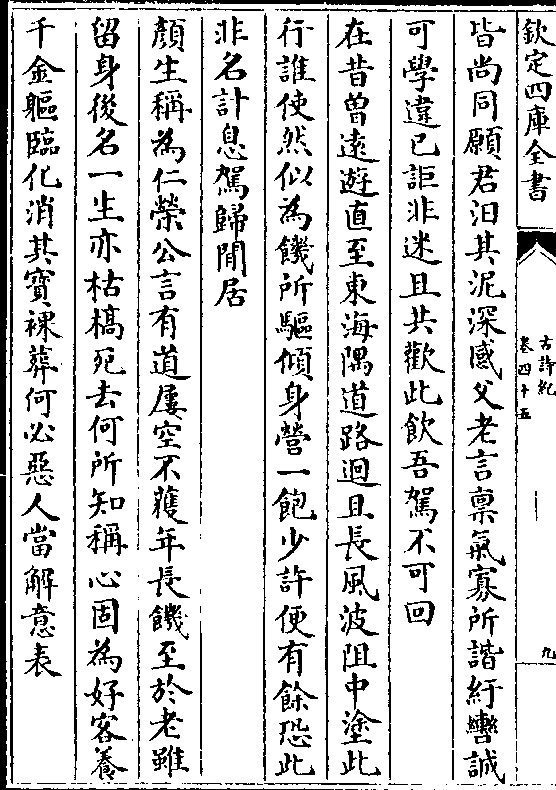 欽定四庫全書
古詩紀
卷四十五
九
皆尚同願君汨其泥深感父老言禀氣寡所諧紆轡誠
可學違已詎非迷且共歡此飲吾駕不可回
在昔曾遠遊直至東海隅道路迥且長風波阻中塗此
行誰使然似為饑所驅傾身營一飽少許便有餘恐此
非名計息駕歸閒居
顏生稱為仁榮公言有道屢空不獲年長饑至於老雖
留身後名一生亦枯槁死去何所知稱心固為好客養
千金軀臨化消其寶裸葬何必惡人當解意表